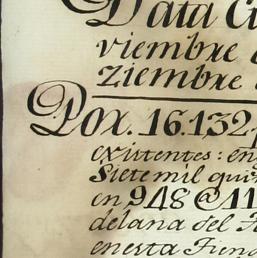 Data Cu
viembre
ziembre
Por. 16.132
existentes: en
Siete mil qui
en 948 @ 11
delana del
enesta Tiend